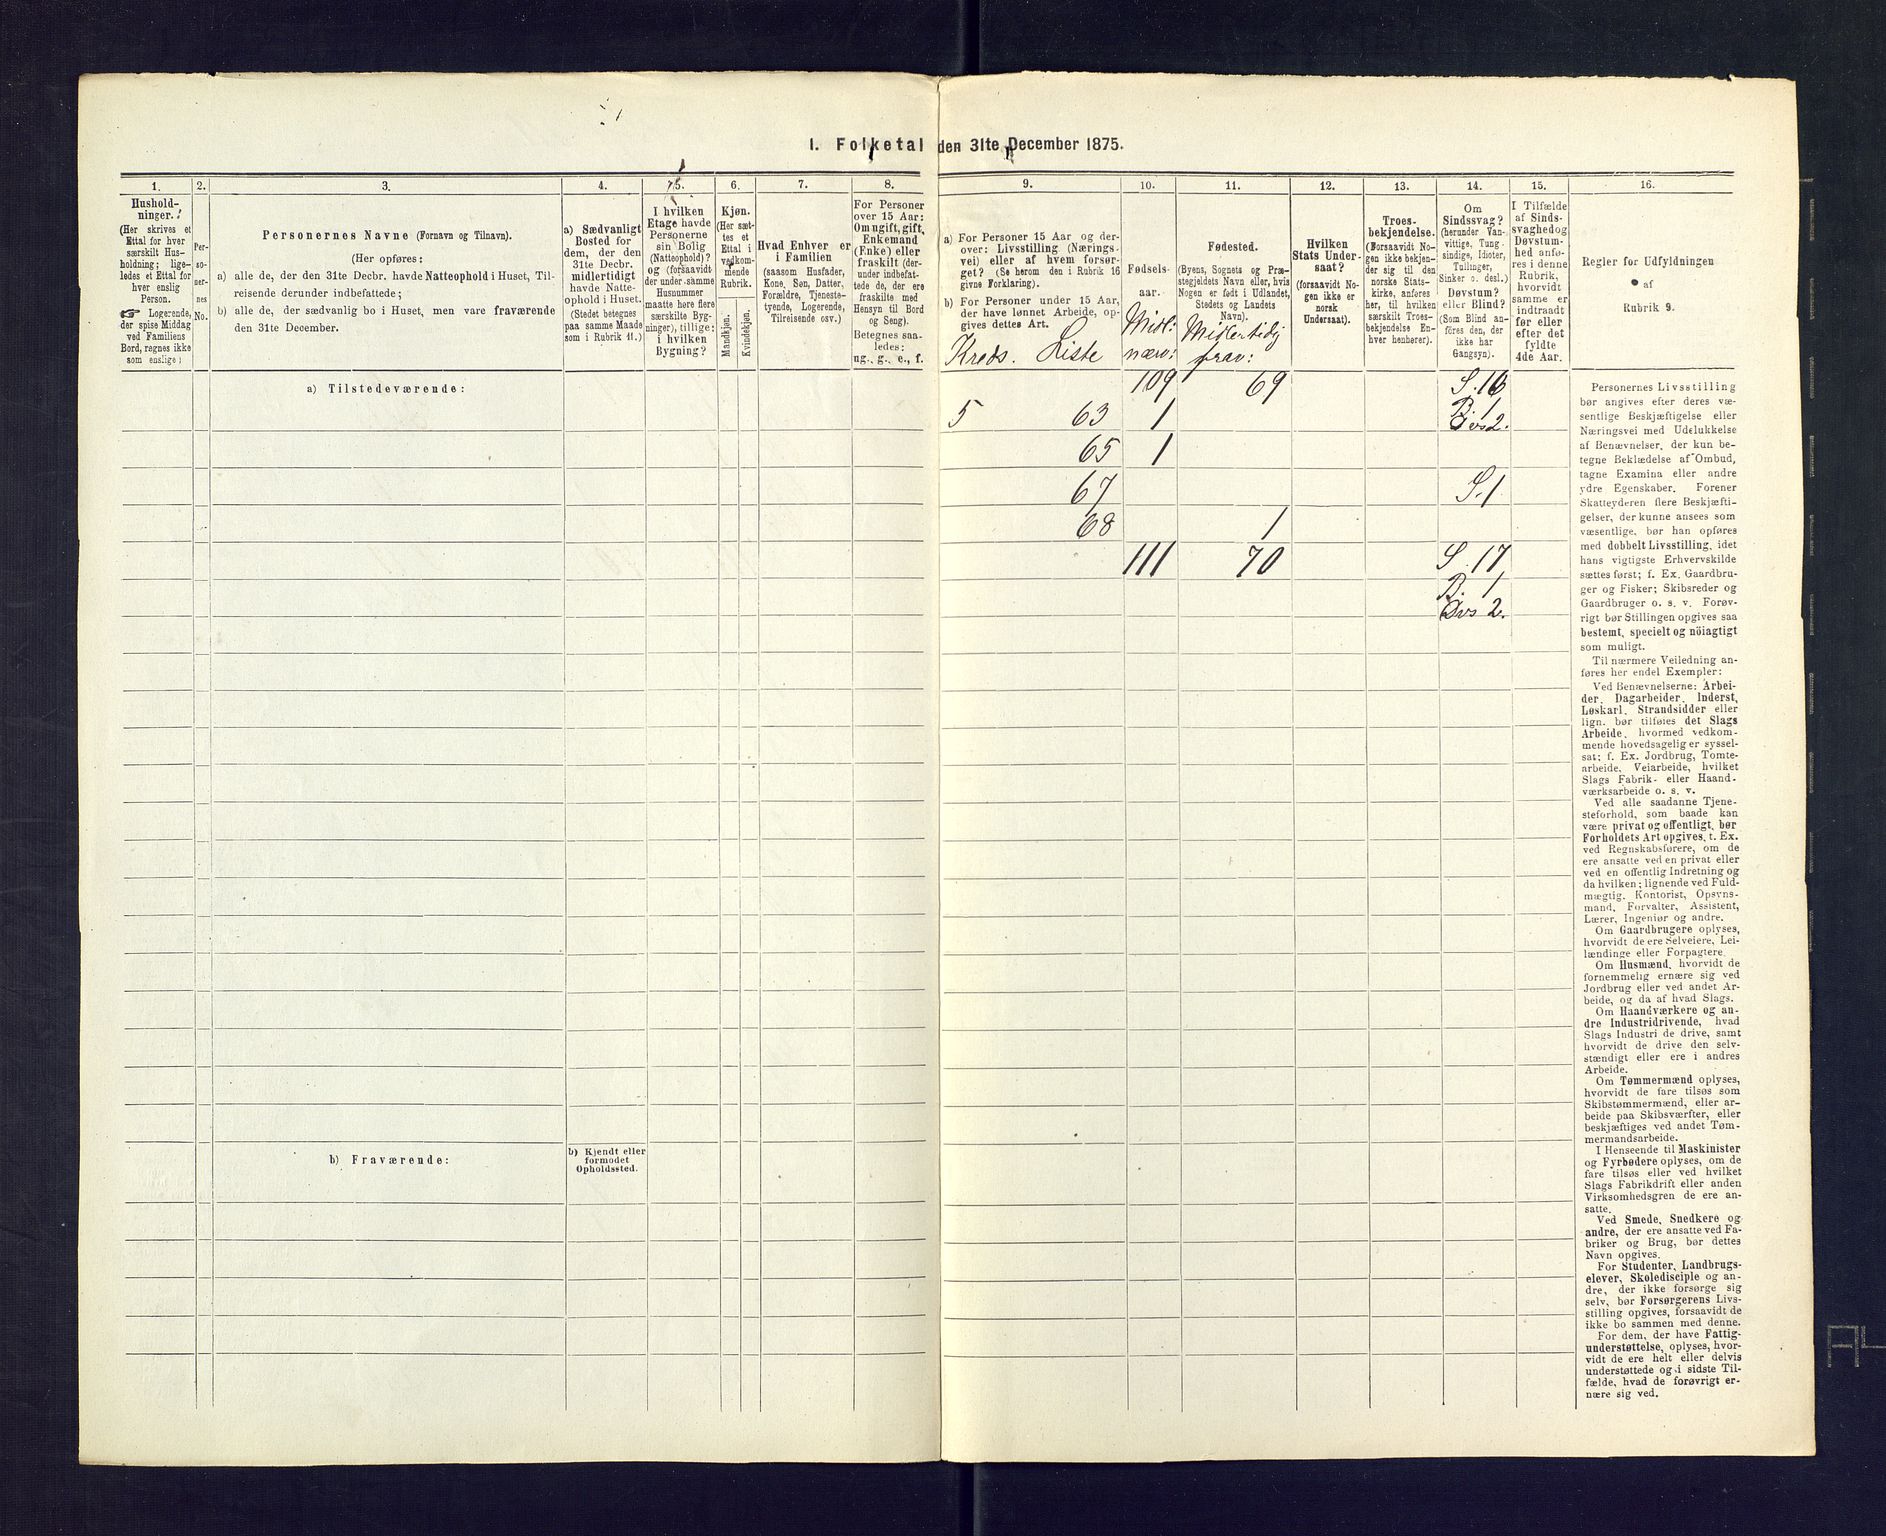 1. Folketal den 31te December 1875.
1.
2.
3.
4.
5.
6.
7.
8.
9.
10.
11.
12.
13.
14.
15.
16.
Hushold-
ninger.
(Her skrives et
Ettal for hver
særskilt Hus-
holdning; lige-
ledes et Ettal for
hver enslig
Person.
☞ Logerende,
der spise Middag
ved Familiens
Bord, regnes ikke
som enslige;
Per-
so-
ner-
nes
No.
Personernes Navne (Fornavn og Tilnavn).
(Her opføres:
a) alle de, der den 31te Decbr. havde Natteophold i Huset, Til-
reisende derunder indbefattede;
b) alle de, der sædvanlig bo i Huset, men vare fraværende
den 31te December.
a) Sædvanligt
Bosted for
dem, der den
31te Decbr.
midlertidigt
havde Natte-
ophold i Huset.
(Stedet betegnes
paa samme Maade
som i Rubrik 11.)
I hvilken
Etage havde
Personerne
sin Bolig
(Natteophold)?
og (forsaavidt
der under samme
Husnummer
maatte høre flere
særskilte Byg-
ninger), tillige:
i hvilken
Bygning?
Kjøn.
(Her sæt-
tes et
Ettal i
vedkom-
mende
Rubrik.
Mandkjøn.
Kvindekjøn.
Hvad Enhver er
i Familien
(saasom Husfader,
Kone, Søn, Datter,
Forældre, Tjeneste-
tyende, Logerende,
Tilreisende osv.)
For Personer
over 15 Aar:
Om ugift, gift,
Enkemand
(Enke) eller
fraskilt (der-
under indbefat-
tede de, der ere
fraskilte med
Hensyn til Bord
og Seng).
Betegnes saa-
ledes:
ug., g., e., f.
a) For Personer 15 Aar og der-
over: Livsstilling (Nærings-
vei) eller af hvem forsør-
get? (Se herom den i Rubrik 16
givne Forklaring).
b) For Personer under 15 Aar,
der have lønnet Arbeide, op-
gives dettes Art.
Kreds. Liste
Fødsels-
aar.
Midl:
nærv:
Fødested.
(Byens, Sognets og Præ-
stegjeldets Navn eller, hvis
Nogen er født i Udlandet,
Stedets og Landets
Navn).
Midlertidig
frav:
Hvilken
Stats Under-
saat?
(forsaavidt No-
gen ikke er
norsk
Undersaat).
Troes-
bekjendelse.
(Forsaavidt No-
gen ikke bekjen-
der sig til den
norske Stats-
kirke, anføres
her, til hvilken
særskilt Troes-
bekjendelse En-
hver henhører).
Om
Sindssvag?
(herunder Van-
vittige, Tung-
sindige, Idioter,
Tullinger,
Sinker o. desl.)
Døvstum?
eller Blind?
(Som Blind an-
føres den, der
ikke har
Gangsyn).
I Tilfælde
af Sinds-
svaghed og
Døvstum-
hed anfø-
res i denne
Rubrik,
hvorvidt
samme er
indtraadt
før eller
efter det
fyldte
4de Aar.
Regler for Udfyldningen
af
Rubrik 9.
a) Tilstedeværende:
109 69 S. 16
B. 1
5 63 1 Døvs 2.
65 1
67 S. 1
68 1
111 70 S. 17
B. 1
Døvs 2.
b) Fraværende:
b) Kjendt eller
formodet
Opholdssted.
Personernes Livsstilling
bør angives efter deres væ-
sentlige Beskjæftigelse eller
Næringsvei med Udelukkelse
af Benævnelser, der kun be-
tegne Beklædelse af Ombud,
tagne Examina eller andre
ydre Egenskaber. Forener
Skatteyderen flere Beskjæfti-
gelser, der kunne ansees som
væsentlige, bør han opføres
med dobbelt Livsstilling, idet
hans vigtigste Erhvervskilde
sættes først; f. Ex. Gaardbru-
ger og Fisker; Skibsreder og
Gaardbruger o. s. v. Forøv-
rigt bør Stillingen opgives saa
bestemt, specielt og nöiagtigt
som muligt.
Til nærmere Veiledning an-
føres her endel Exempler:
Ved Benævnelserne: Arbei-
der, Dagarbeider, Inderst,
Løskarl, Strandsidder eller
lign. bør tilføies det Slags
Arbeide, hvormed vedkom-
mende hovedsagelig er syssel-
sat; f. Ex. Jordbrug, Tomte-
arbeide, Veiarbeide, hvilket
Slags Fabrik- eller Haand-
værksarbeide o. s. v.
Ved alle saadanne Tjene-
steforhold, som baade kan
være privat og offentligt, bør
Forholdets Art opgives, t. Ex.
ved Regnskabsførere, om de
ere ansatte ved en privat eller
ved en offentlig Indretning og
da hvilken; lignende ved Fuld-
mægtig, Kontorist, Opsyns-
mand, Forvalter, Assistent,
Lærer, Ingeniør og andre.
Om Gaardbrugere oplyses,
hvorvidt de ere Selveiere, Lei-
lændinge eller Forpagtere.
Om Husmænd, hvorvidt de
fornemmelig ernære sig ved
Jordbrug eller ved andet Ar-
beide, og da af hvad Slags.
Om Haandværkere og an-
dre Industridrivende, hvad
Slags Industri de drive, samt
hvorvidt de drive den selv-
stændigt eller ere i andres
Arbeide.
Om Tømmermænd oplyses,
hvorvidt de fare tilsøs som
Skibstømmermænd, eller ar-
beide paa Skibsværfter, eller
beskjæftiges ved andet Tøm-
mermandsarbeide.
I Henseende til Maskinister
og Fyrbødere oplyses, om de
fare tilsøs eller ved hvilket
Slags Fabrikdrift eller anden
Virksomhedsgren de ere an-
satte.
Ved Smede, Snedkere og
andre, der ere ansatte ved Fa-
briker og Brug, bør dettes
Navn opgives.
For Studenter, Landbrugs-
elever, Skoledisciple og an-
dre, der ikke forsørge sig
selv, bør Forsørgerens Livs-
stilling opgives, forsaavidt de
ikke bo sammen med denne.
For dem, der have Fattig-
understøttelse, oplyses, hvor-
vidt de ere helt eller delvis
understøttede og i sidste Til-
fælde, hvad de forøvrigt er-
nære sig ved.